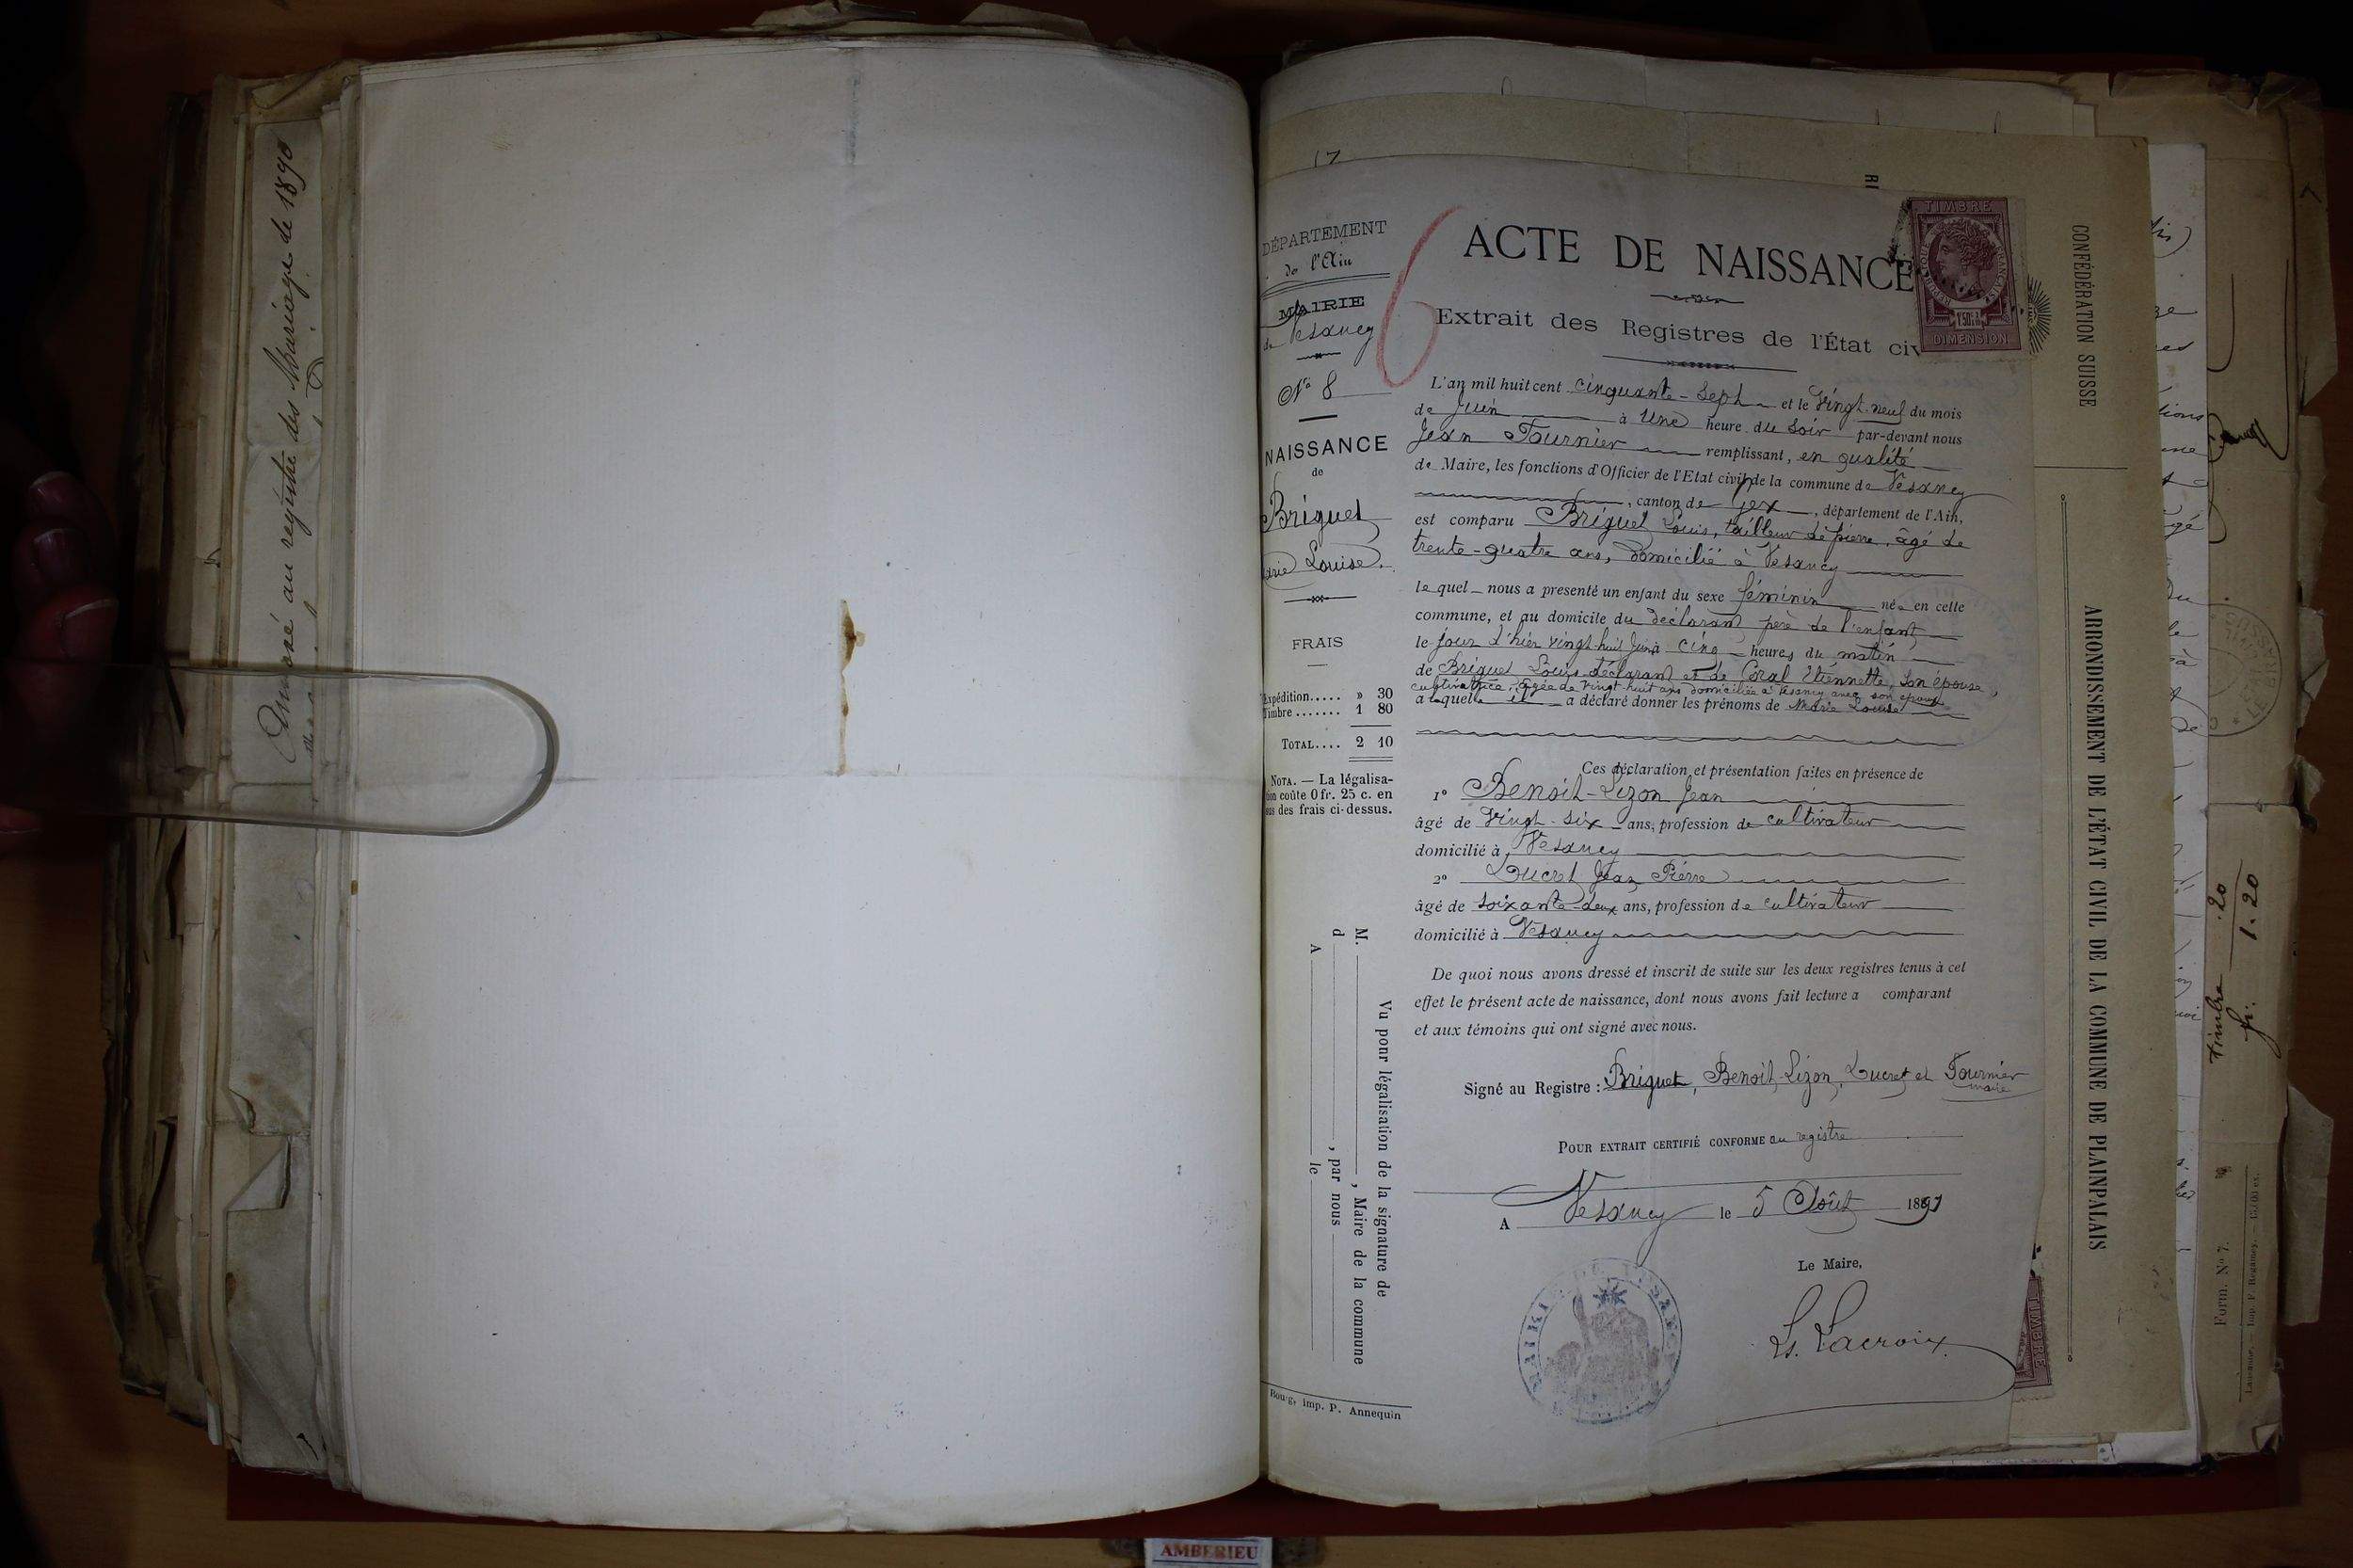 au registre des Mariage de 1890
17
DÉPARTEMENT
de l'Ain
MAIRIE
de Vesancy
No 8
NAISSANCE
de
Briguet
Marie Louise.
FRAIS
Expédition..... » 30
Timbre....... 1 80
TOTAL.... 2 10
NOTA. — La légalisa-
tion coûte 0 fr. 25 c. en
sus des frais ci-dessus.
M. , Maire de la commune
d , par nous
A le
Vu pour légalisation de la signature de
Bourg, imp. P. Annequin
6
ACTE DE NAISSANCE
Extrait des Registres de l'État civ
TIMBRE
RÉPUBLIQUE FRANÇAISE
1f50c
DIMENSION
L'an mil huit cent cinquante-sept et le vingt-neuf du mois
de Juin à une heure du soir par-devant nous
Jean Fournier remplissant, en qualité
de Maire, les fonctions d'Officier de l'Etat civil de la commune de Vesancy
, canton de Gex , département de l'Ain,
est comparu Briguet Louis, tailleur de pierre, âgé de
trente-quatre ans, domicilié à Vesancy
lequel nous a presenté un enfant du sexe féminin née en celle
commune, et au domicile du déclarant père de l'enfant
le jour d'hier vingt huit Juin à cinq heures du matin
de Briguet Louis déclarant et de Coral Etiennette, son épouse,
cultivatrice, âgée de vingt-huit ans domiciliée à Vesancy avec son époux
a laquelle il a déclaré donner les prénoms de Marie Louise
Ces déclaration et présentation faites en présence de
1º Benoit-Lizon Jean
âgé de vingt-six ans, profession de cultivateur
domicilié à Vesancy
2º Ducret Jean Pierre
âgé de soixante-deux ans, profession de cultivateur
domicilié à Vesancy
De quoi nous avons dressé et inscrit de suite sur les deux registres tenus à cet
effet le présent acte de naissance, dont nous avons fait lecture a comparant
et aux témoins qui ont signé avec nous.
Signé au Registre : Briguet, Benoit-Lizon, Ducret et Fournier
maire
POUR EXTRAIT CERTIFIÉ CONFORME au registre
A Vesancy le 5 Août 1891
Le Maire,
Ls. Lacroix
MAIRIE DE VESANCY
TIMBRE
CONFÉDÉRATION SUISSE
ARRONDISSEMENT DE L'ÉTAT CIVIL DE LA COMMUNE DE PLAINPALAIS
timbre .20
fr. 1.20
Form. No 7.
AMBERIEU